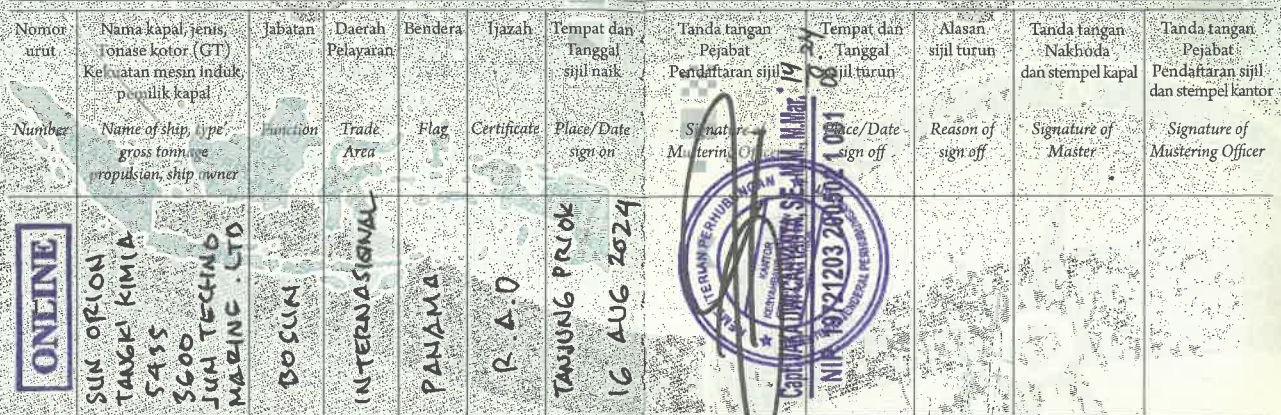 Nomor urut
Nama kapal, jenis,
Tonase kotor (GT)
Kekuatan mesin induk,
pemilik kapal
Jabatan
Daerah
Pelayaran
Bendera
Ijazah
Tempat dan
Tanggal
sijil naik
Tanda tangan
Pejabat
Pendaftaran sijil
Tempat dan
Tanggal
sijil turun
Alasan
sijil turun
Tanda tangan
Nakhoda
dan stempel kapal
Tanda tangan
Pejabat
Pendaftaran sijil
dan stempel kantor
Number
Name of ship, type
gross tonnage
propulsion, ship owner
Function
Trade
Area
Flag
Certificate
Place/Date
sign on
Signature of
Mustering Officer
Place/Date
sign off
Reason of
sign off
Signature of
Master
Signature of
Mustering Officer
ONLINE
SUN ORION
TANGKI KIMIA
5435
3600
JUN TECHNO
MARINE . LTD
BOSUN
INTERNASIONAL
PANAMA
R . A . D
TANJUNG PRIOK
16 AUG 2024
PERHUBUNGAN
KANTOR